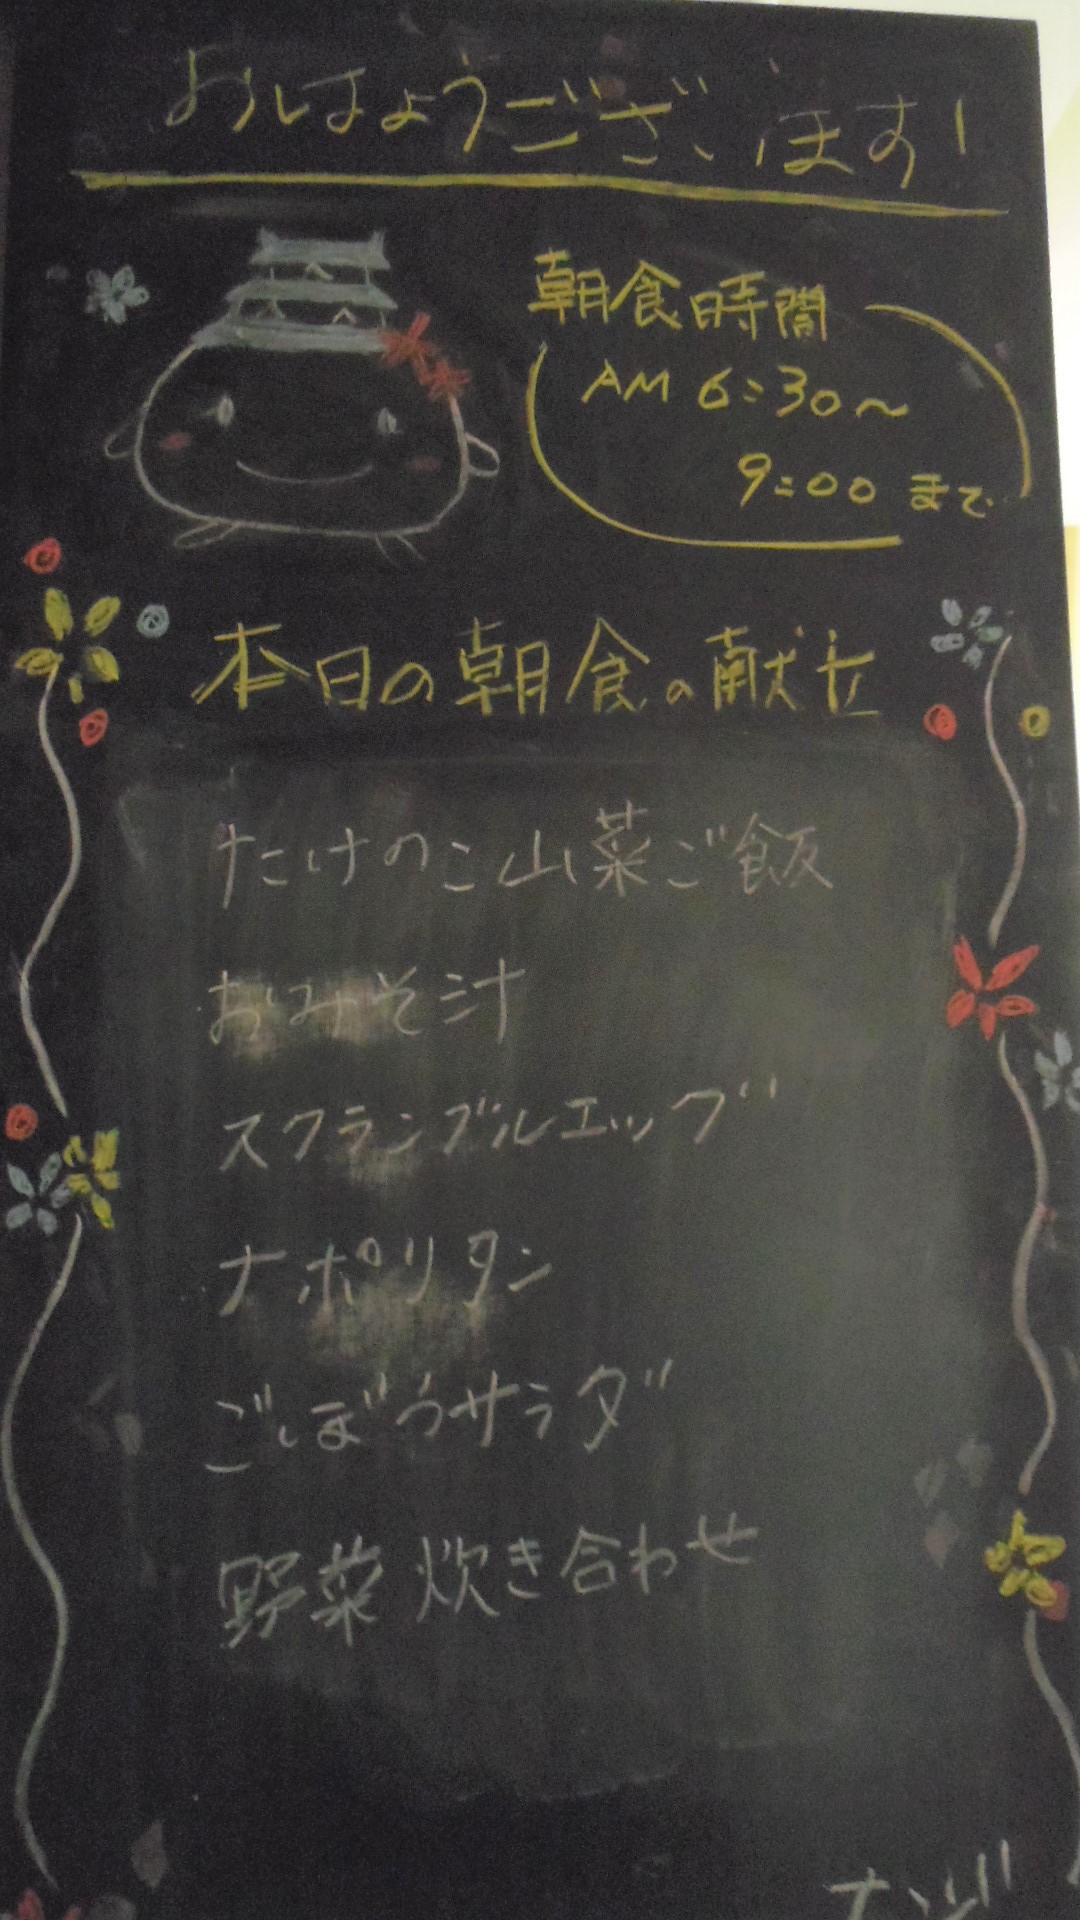 おはようございます!
朝食時間
AM 6:30〜
9:00 まで
本日の朝食の献立
たけのこ山菜ご飯
おみそ汁
スクランブルエッグ
ナポリタン
ごぼうサラダ
野菜炊き合わせ